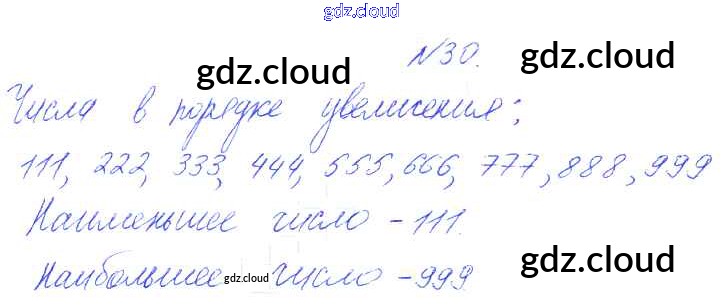 gdz.cloud
№30.
gdz.cloud gdz.cloud
Числа в порядке увеличения:
111, 222, 333, 444, 555, 666, 777, 888, 999
Наименьшее число – 111.
gdz.cloud
Наибольшее число – 999
gdz.cloud